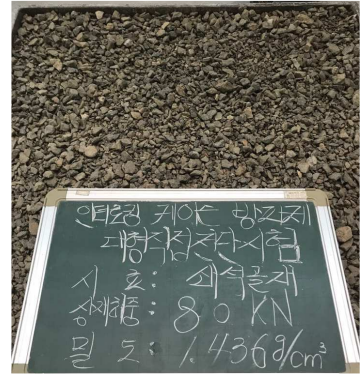 인터로킹 케이슨 방파제
대형직접전단시험
시 료: 쇄석골재
상재하중: 80 KN
밀 도: 1.436g/cm³